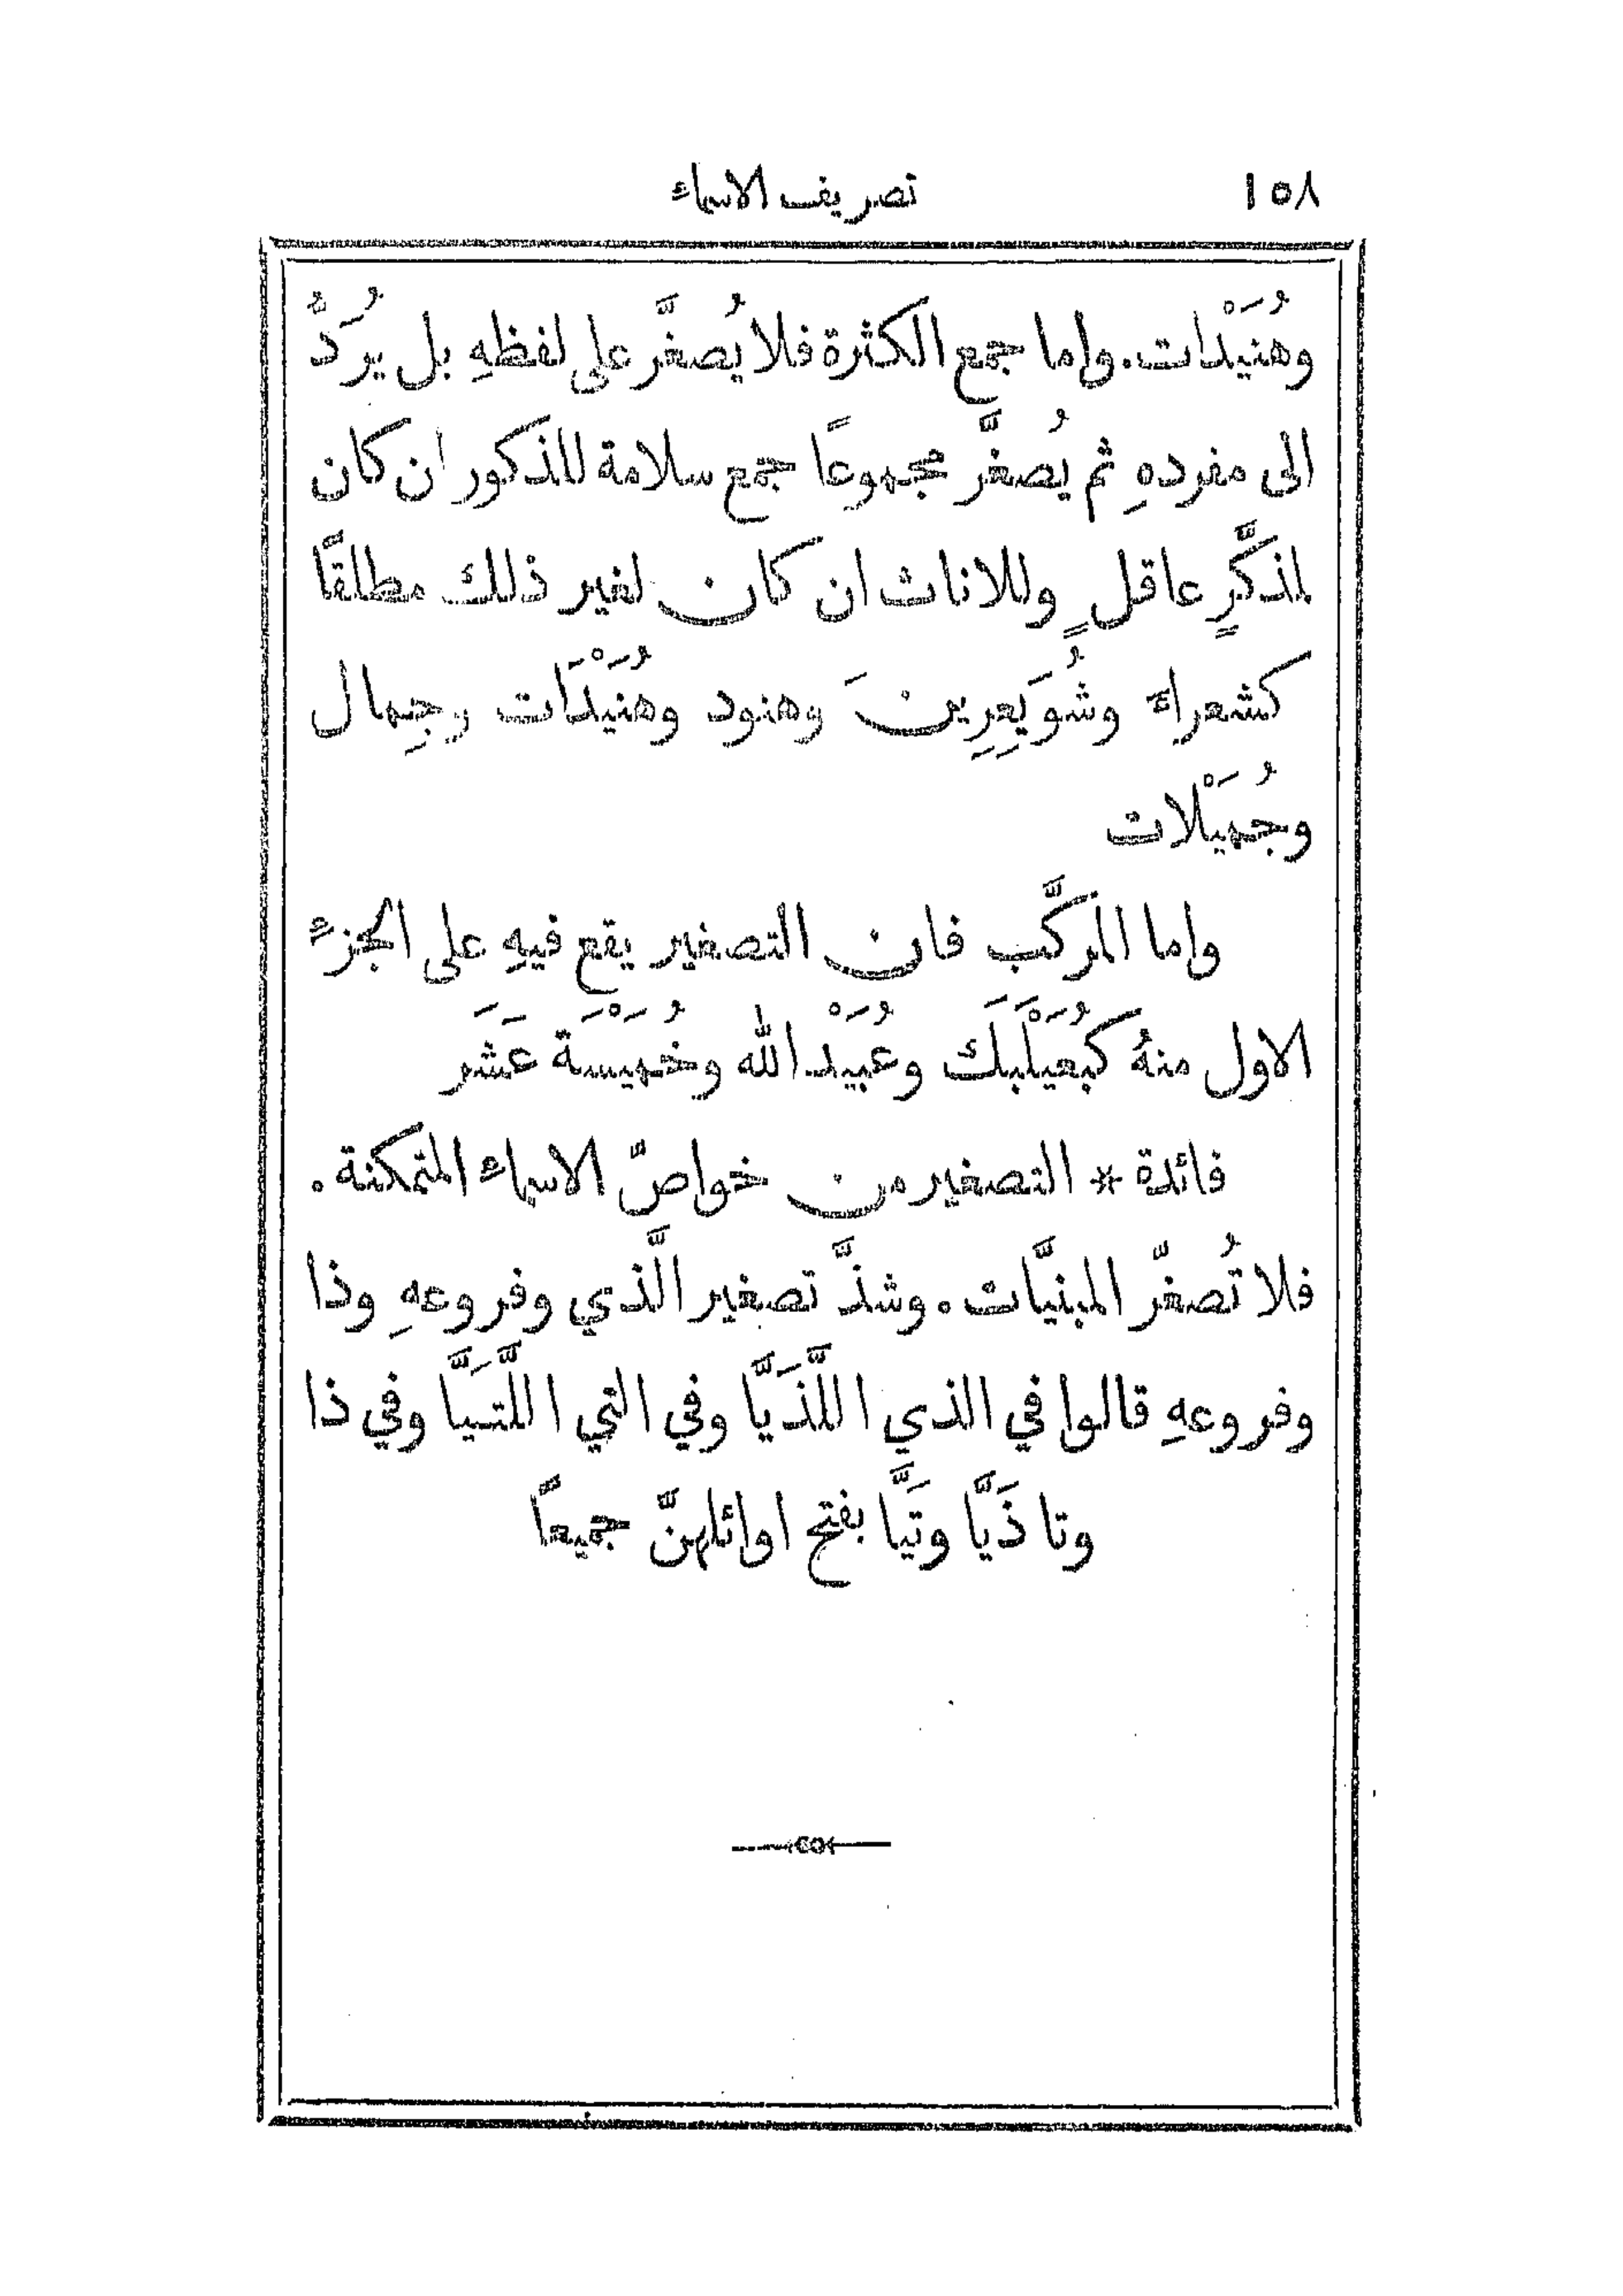 ١٥٨ تصريف الاسماء
وهُنَيْدَات. واما جمع الكثرة فلا يُصغَّر على لفظهِ بل يُرَدُّ
الى مفردهِ ثم يُصغَّر مجموعًا جمع سلامة للذكور ان كان
لمذكَّرٍ عاقلٍ وللاناث ان كان لغير ذلك مطلقًا
كشعراء وشُوَيعِرِينَ وهنود وهُنَيْدَات وجِمال
وجُمَيْلات
واما المركَّب فان التصغير يقع فيهِ على الجزء
الاول منهُ كبُعَيْلَبَكَ وعُبَيْد الله وخُمَيْسَةَ عَشَرَ
فائدة * التصغير من خواصّ الاسماء المتمكنة.
فلا تُصغّر المبنيَّات. وشذَّ تصغير الَّذي وفروعهِ وذا
وفروعهِ قالوا في الذي اللَّذَيَّا وفي التي اللَّتَيَّا وفي ذا
وتا ذَيَّا وتَيَّا بفتح اوائلهنّ جميعًا